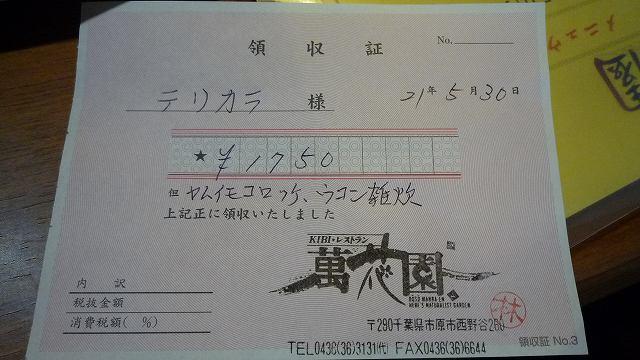 領収証
No.
テリカラ 様 21年5月30日
★ ¥1750
但 ヤムイモコロッケ、ウコン雑炊
上記正に領収いたしました
KIBI・レストラン
萬花園
BOSO MANKA EN
HERB'S NATURALIST GARDEN
内訳
税抜金額
消費税額( %)
林
〒290千葉県市原市西野谷260
TEL0436(36)3131(代) FAX0436(36)6644
領収証 No.3
メニュウ